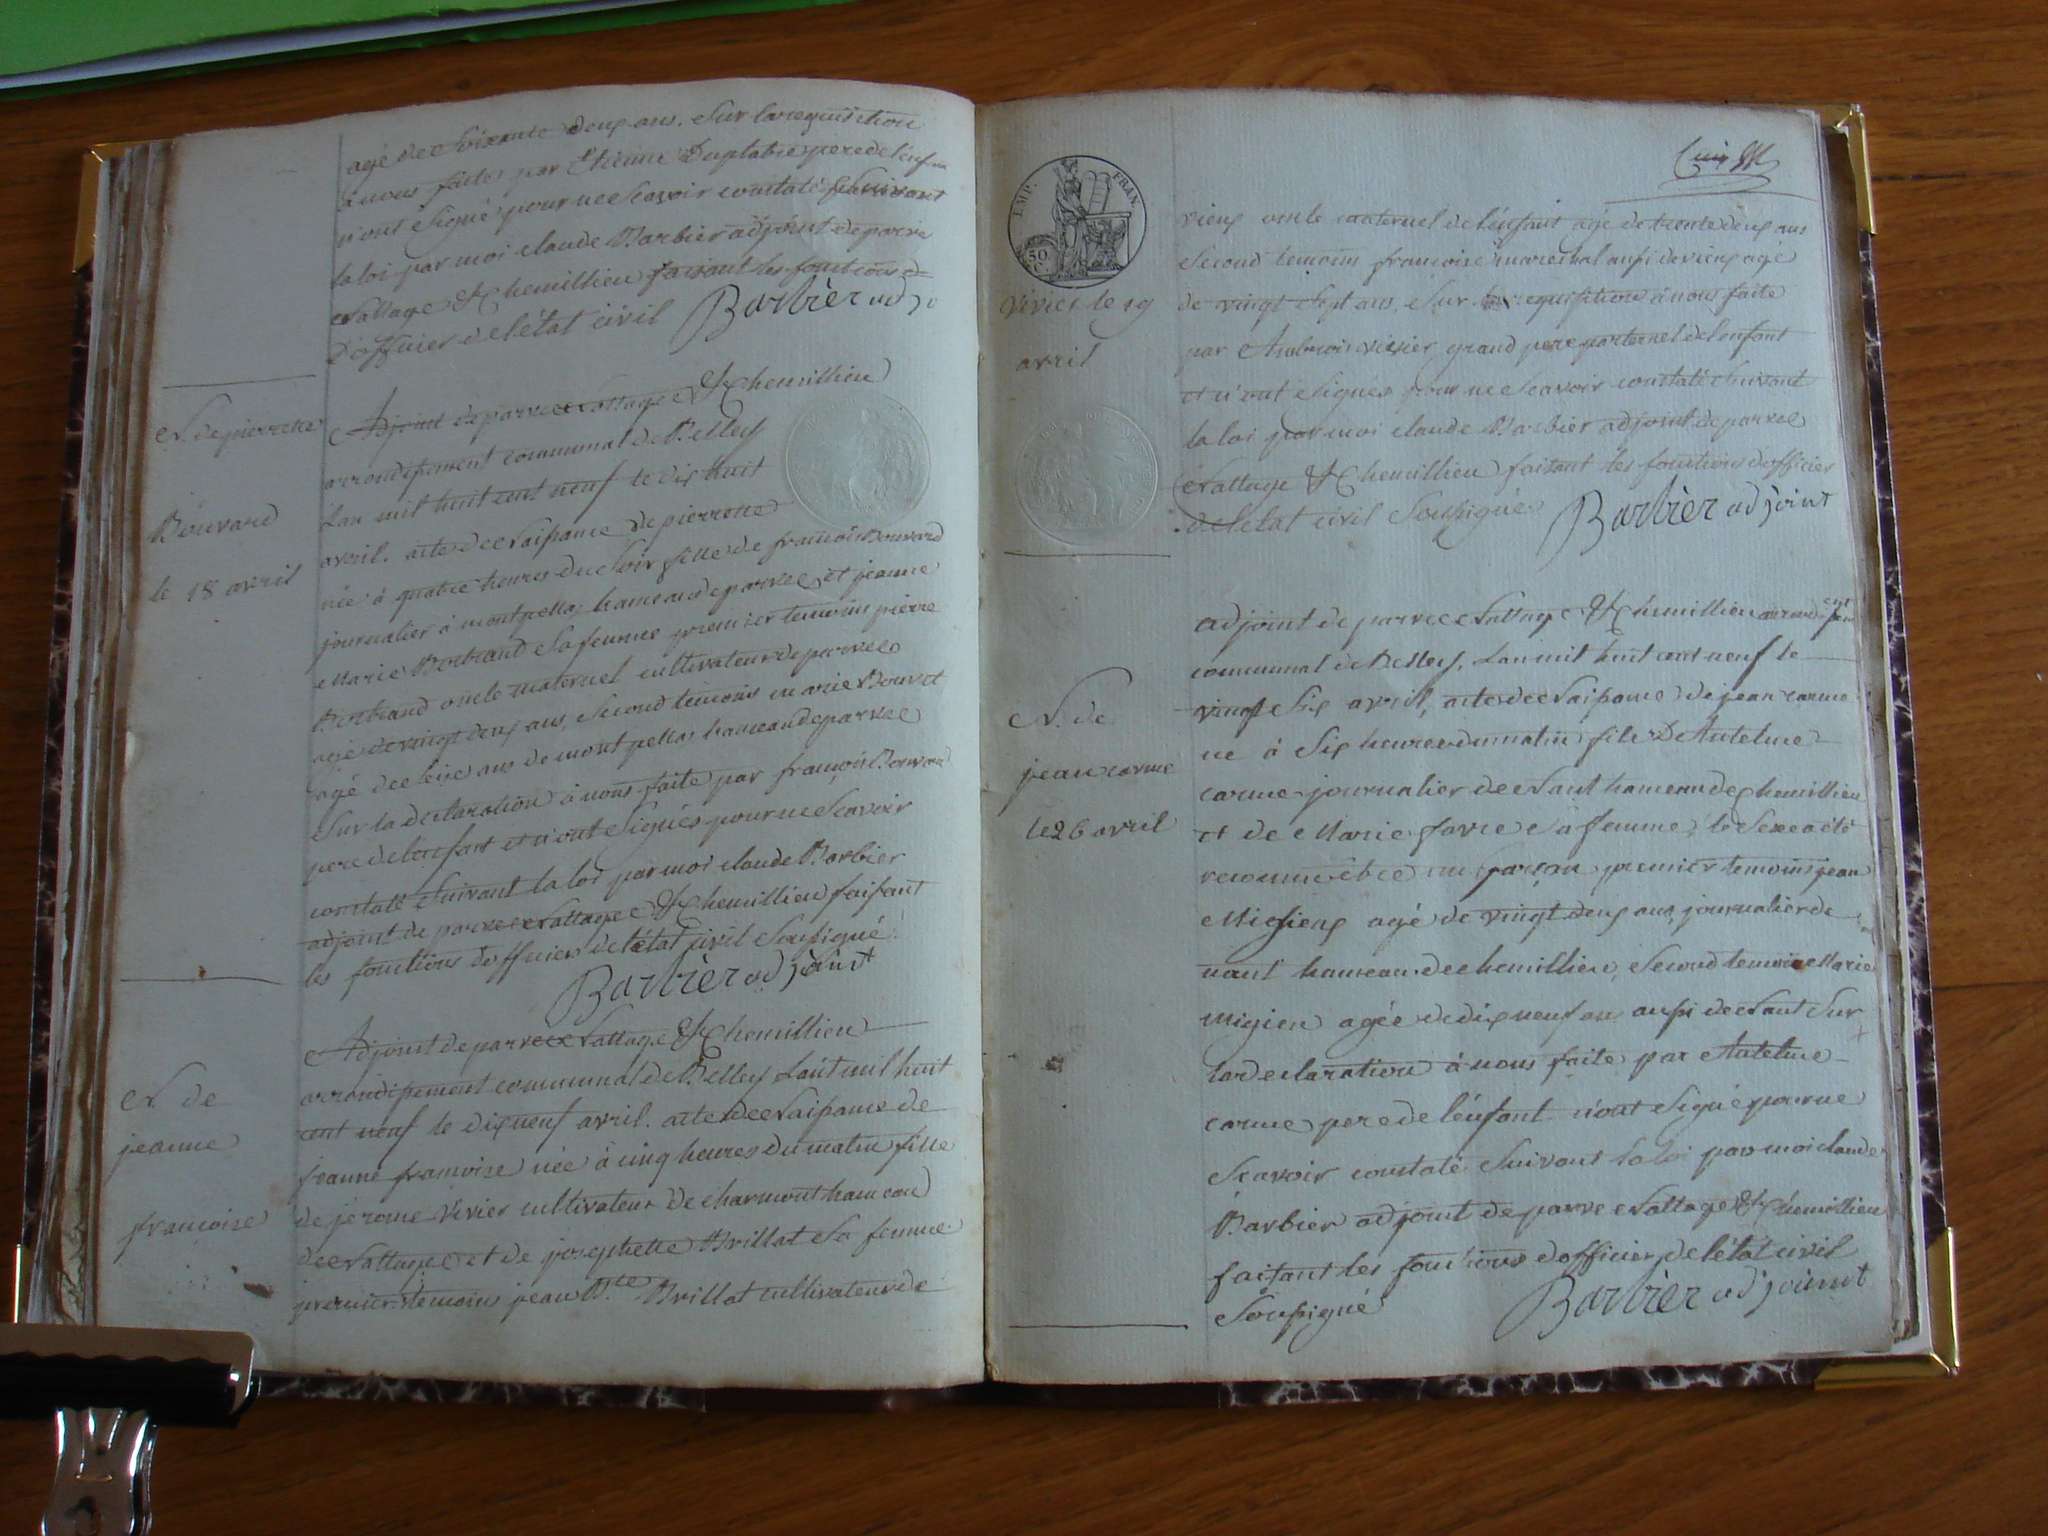 agé de soixante deux ans. Sur la requisition
a nous faite par Etienne Duplatre pere de l'enfant
n'ont signé pour ne scavoir constaté suivant
la loi par moi claude Barbier adjoint de parve
Nattage & Chemillieu faisant les fonctions
d'officier de l'état civil Barbier adj
N. de pierrette
Bouvard
le 18 avril
Adjoint de parve Nattage & Chemillieu
arrondissement communal de Belley
Lan mil huit cent neuf le dix huit
avril. acte de Naissance de pierrette
née à quatre heures du Soir fille de francois Bouvard
journalier à montpellas hameau de parve et jeanne
Marie Bertrand Sa femme premier temoins pierre
Bertrand oncle maternel cultivateur de parve
agé de vingt deux ans, Second temoins marie Bouvet
agé de seize ans de montpellas hameau de parve
Sur la declaration à nous faite par françois Bouvard
pere de l'enfant et n'ont signés pour ne Scavoir
constaté Suivant la loi par moi claude Barbier
adjoint de parve Nattage & Chemillieu faisant
les fonctions d'officier de l'état civil Soussigné
Barbier adjoint
N. de
jeanne
francoise
Adjoint de parve Nattage & Chemillieu
arrondissement communal de Belley Lant mil huit
cent neuf le dix neuf avril. acte de Naissance de
jeanne francoise née à cinq heures du matin fille
de jérome Vivier cultivateur de charmont hameau
de Nattage et de josephette Brillat Sa femme
premier temoins jean Bte Brillat cultivateur de
EMP. FRAN.
50
C.
Vivier le 19
avril
viens oncle maternel de l'enfant agé de trente deux ans
Second temoins francoise marechal aussi de viens agé
de vingt Sept ans, Sur la requisition à nous faite
par Ambrois vivier grand pere parternel de l'enfant
et n'ont signés pour ne Scavoir constaté Suivant
la loi par moi claude Barbier adjoint de parve
Nattage & Chemillieu faisant les fonctions d'officier
de l'etat civil Soussigné Barbier adjoint
N. de
jean carme
le 26 avril
adjoint de parve Nattage & Chemillieu
communal de Belley, Lan mil huit cent neuf le
vingt Six avril, acte de Naissance de jean carme
né à Six heures du matin fils D'Antelme
carme journalier de Nant hameau de Chemillieu
et de Marie favre Sa femme, le Sexe a été
reconnu être un garçon premier temoins jean
Migieux agé de vingt deux ans journalier de
nant hameau de chemillieu, Second temoin Marie
migieu agée de dix neuf ans aussi de Nant Sur
la declaration à nous faite par Antelme
carme pere de l'enfant n'ont Signé pour ne
Scavoir constaté Suivant la loi par moi claude
Barbier adjoint de parve Nattage & Chémillieu
faisant les fonctions d'officier de l'état civil
Soussigné Barbier adjoint